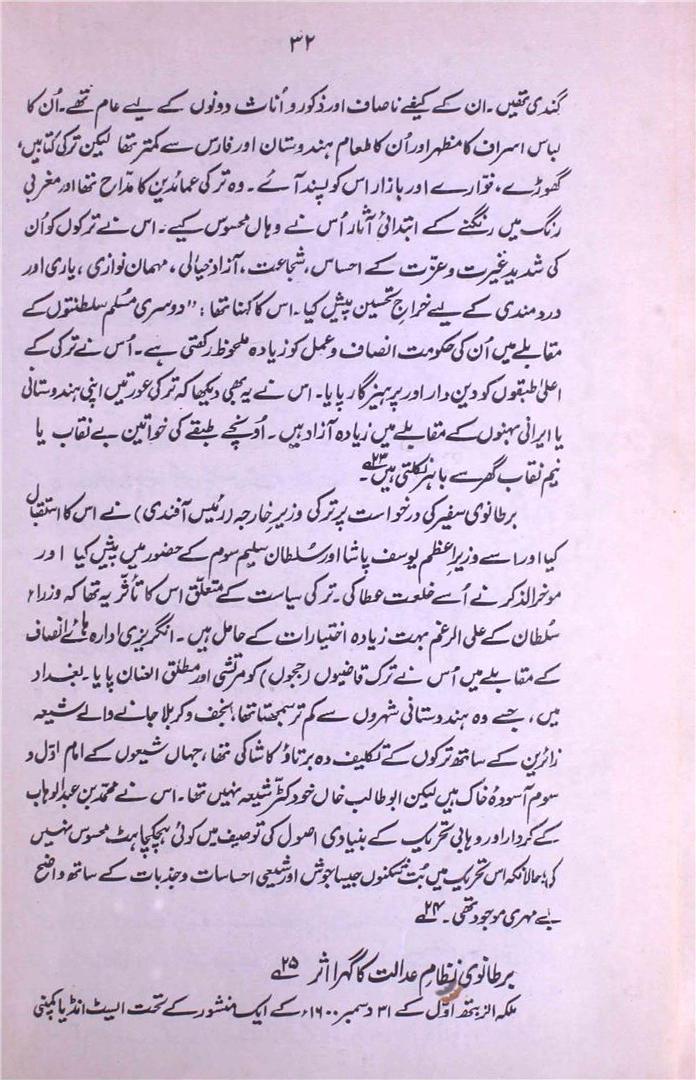 ۳۲
گندی تھیں۔ ان کے کیفے ناصاف اور ذکور و اُناث دونوں کے لیے عام تھے۔ اُن کا
لباس اسراف کا مظہر اور اُن کا طعام ہندوستان اور فارس سے کمتر تھا لیکن ترکی کتابیں،
گھوڑے، فوّارے اور بازار اس کو پسند آئے۔ وہ ترکی عمائدین کا مدّاح تھا اور مغربی
رنگ میں رنگنے کے ابتدائی آثار اُس نے وہاں محسوس کیے۔ اس نے ترکوں کو اُن
کی شدید غیرت و عزّت کے احساس، شجاعت، آزاد خیالی، مہمان نوازی، یاری اور
درد مندی کے لیے خراجِ تحسین پیش کیا۔ اس کا کہنا تھا: "دوسری مُسلم سلطنتوں کے
مقابلے میں اُن کی حکومت انصاف و عمل کو زیادہ ملحوظ رکھتی ہے۔ اُس نے ترکی کے
اعلیٰ طبقوں کو دین دار اور پرہیزگار پایا۔ اس نے یہ بھی دیکھا کہ ترکی عورتیں اپنی ہندوستانی
یا ایرانی بہنوں کے مقابلے میں زیادہ آزاد ہیں۔ اُونچے طبقے کی خواتین بے نقاب یا
نیم نقاب گھر سے باہر نکلتی ہیں۲۳؎۔
برطانوی سفیر کی درخواست پر ترکی وزیرِ خارجہ (رئیس آفندی) نے اس کا استقبال
کیا اور اسے وزیرِ اعظم یوسف پاشا اور سُلطان سلیم سوم کے حضور میں پیش کیا اور
موخرالذکر نے اُسے خلعت عطا کی۔ ترکی سیاست کے متعلّق اس کا تأثّر یہ تھا کہ وزراء
سُلطان کے علی الرغم بہت زیادہ اختیارات کے حامل ہیں۔ انگریزی ادارہ ہائے انصاف
کے مقابلے میں اُس نے ترک قاضیوں (ججوں) کو مرتشی اور مطلق العنان پایا۔ بغداد
میں، جسے وہ ہندوستانی شہروں سے کم تر سمجھتا تھا، نجف و کربلا جانے والے شیعہ
زائرین کے ساتھ ترکوں کے تکلیف دہ برتاؤ کا شاکی تھا، جہاں شیعوں کے امام اوّل و
سوم آسودۂ خاک ہیں لیکن ابو طالب خاں خود کٹر شیعہ نہیں تھا۔ اس نے محمّد بن عبدالوہاب
کے کردار اور وہابی تحریک کے بنیادی اصول کی توصیف میں کوئی ہچکچاہٹ محسوس نہیں
کی؛ حالانکہ اس تحریک میں بُت شکنوں جیسا جوش اور شیعی احساسات و جذبات کے ساتھ واضح
بے مہری موجود تھی۔ ۲۴؎
برطانوی نظامِ عدالت کا گہرا اثر ۲۵؎
ملکہ الزبتھ اوّل کے ۳۱ دسمبر ۱۶۰۰ء کے ایک منشور کے تحت ایسٹ انڈیا کمپنی